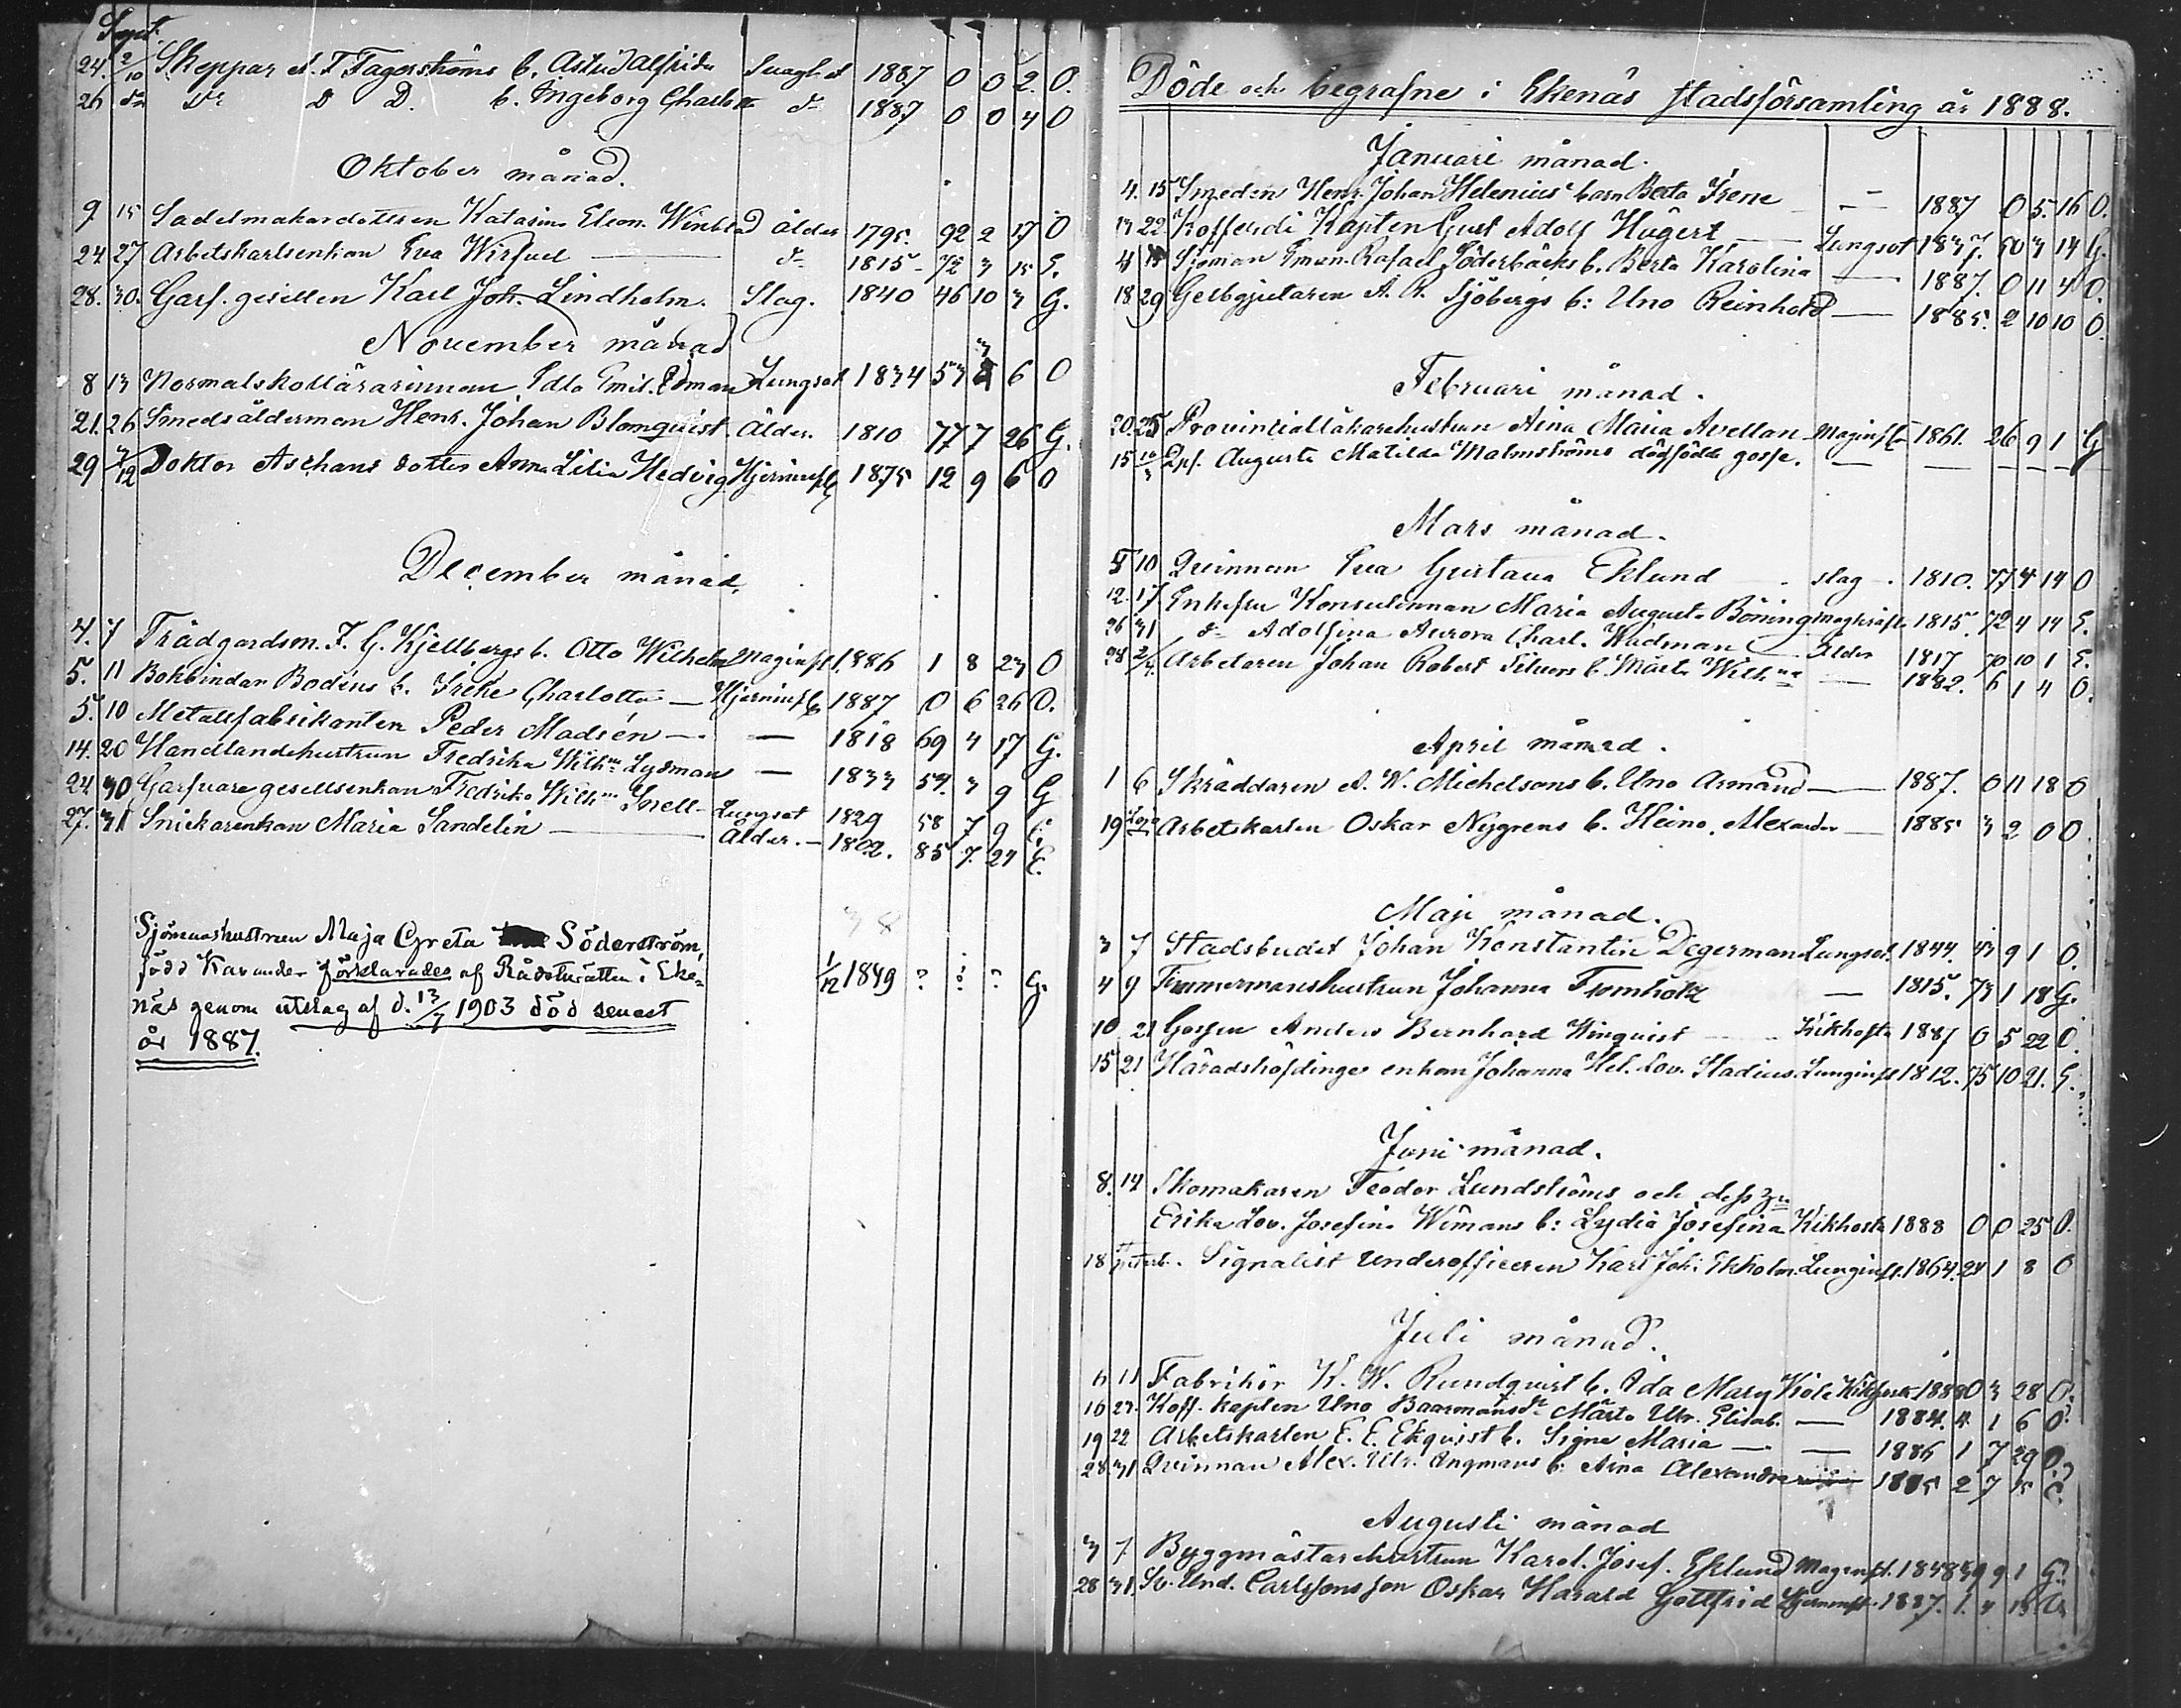 Sept.
24. 2/10 Skeppar A. F. Fagerströms b. Astrid Alfrida Svaghet 1887 0 0 2. 0.
26 do Do D D. b. Ingeborg Charlotta do 1887 0 0 4 0
Oktober månad.
9 15 Sadelmakardottren Katarina Eleon. Winblad ålder 1795. 92 2 17 0
24 27 Arbetskarlsenkan Eva Wirfuel — do 1815 - 72 3 15 E.
28. 30. Garf. gesällen Karl Joh. Lindholm. Slag. 1840 46 10 3 G.
November månad
8 13 Normalskollärarinnan Edla Emil. Edman Lungsot 1834 53 3 6 0
21. 26 Smedsålderman Henr. Johan Blomquist Ålder. 1810 77 7 26 G.
29 3/12 Doktor Aschans dotter Anna Lilia Hedvig Hjerninfl. 1875 12 9 6 0
December månad.
4. 7 Trädgårdsm. F. G. Kjellbergs b. Otto Wilhelm Maginfl. 1886 1 8 23 0
5. 11 Bokbindar Bodens b. Irene Charlotta — Hjerninfl. 1887 0 6 26 0.
5. 10 Metallfabrikanten Peder Madsén — — 1818 69 4 17 G.
14. 20 Handlandehustrun Fredrika Wilhna Lydman — 1833 54. 3 9 G
24 30 Garfvare gesellsenkan Fredrika Wilhna Snell - Lungsot 1829 58 7 9 E.
27. 31 Snickarenkan Maria Sandelin — Ålder. — 1802. 85 7. 24 E.
38
Sjömanshustrun Maja Greta Söderström,
född Karander förklarades af Rådsturätten i Eke- 1/12 1849 ? ? ? G.
näs genom utslag af d. 13/7 1903 död senast
år 1887.
Döde och begrafne i Ekenäs stadsförsamling år 1888.
Januari månad.
4. 15 Smeden Henr. Johan Helenius barn Berta Irene — 1887 0 5. 16 0.
13 22. Koffeudi Kapten Gust Adolf Hügert — Lungsot 1837. 50 3 14 G.
4 15 Sjöman Eman. Rafael Söderbäcks b. Berta Karolina — 1887. 0 11 4 0.
18 29 Gelbgjutaren A. R. Sjöbergs b: Uno Reinhold — 1885. 2 10 10 0.
Februari månad.
20. 25 Provincialläkarehustrun Aina Maria Avellan Maginfl. 1861. 26 9 1 G
15 10/3 Qpf. Augusta Matilda Malmströms dödfödde gosse. — — — — — —
Mars månad.
5 10 Qvinnan Eva Gustava Eklund — slag — 1810. 77 4 14 0
12. 17 Enkefru Konsulinnan Maria Augusta Böning magkräfta 1815. 72 4 14 E.
26 31 do Adolfina Aurora Charl. Wadman — Ålder 1817 70 10 1 E.
28 2/4. Arbetaren Johan Robert b. Märta Wilhna — 1882. 6 1 4 0.
April månad.
1 6 Skräddaren A. W. Michelsons b. Uno Armand — 1887. 0 11 18 0
19 Arbetskarlen Oskar Nygrens b. Heino. Alexander — 1885 3 2 0 0.
Maji månad.
3 7 Stadsbudet Johan Konstantin Degerman Lungsot. 1844. 43 9 1 0.
4 9 Timmermanshustrun Johanna Fromholtz — 1815. 73 1 18 G.
10 21 Gossen Anders Bernhard Winquist — Kikhosta 1887 0 5 22 0.
15 21 Häradshöfdinge enkan Johanna Hel. Lov. Stadius. Lunginfl 1812. 75 10 21. E.
Juni månad.
8. 14 Skomakaren Teodor Lundströms och dess
Erika Lov. Josefina Wimans b: Lydia Josefina Kikhosta 1888 0 0 25 0.
18 Signalist underofficeren Karl Joh. Ekholm. Lunginfl. 1864. 24 1 8 0
Juli månad.
6 11 Fabrikör K. W. Rundquist b. Ida Mary Viola Kikhosta 1888 0 3 28 0.
16 23. Koff. kapten Uno Baarmans dr Märta Ulr. Elisab. — 1884. 4. 1 6 0
19 22 Arbetskarlen E. E. Ekquist b. Signe Maria — — 1886 1 7 29 0.
28 31 Qvinnan Alex. Ulr. Ångmans b: Aina Alexandra 1885 2 7 15
Augusti månad
3 7 Byggmästarehustrun Karol. Josef. Eklund Maginfl. 1848 39 9 1 G
28 31. Sv. Und. Carlssons son Oskar Harald Gottfrid Hjerninfl. 1887. 1. 4